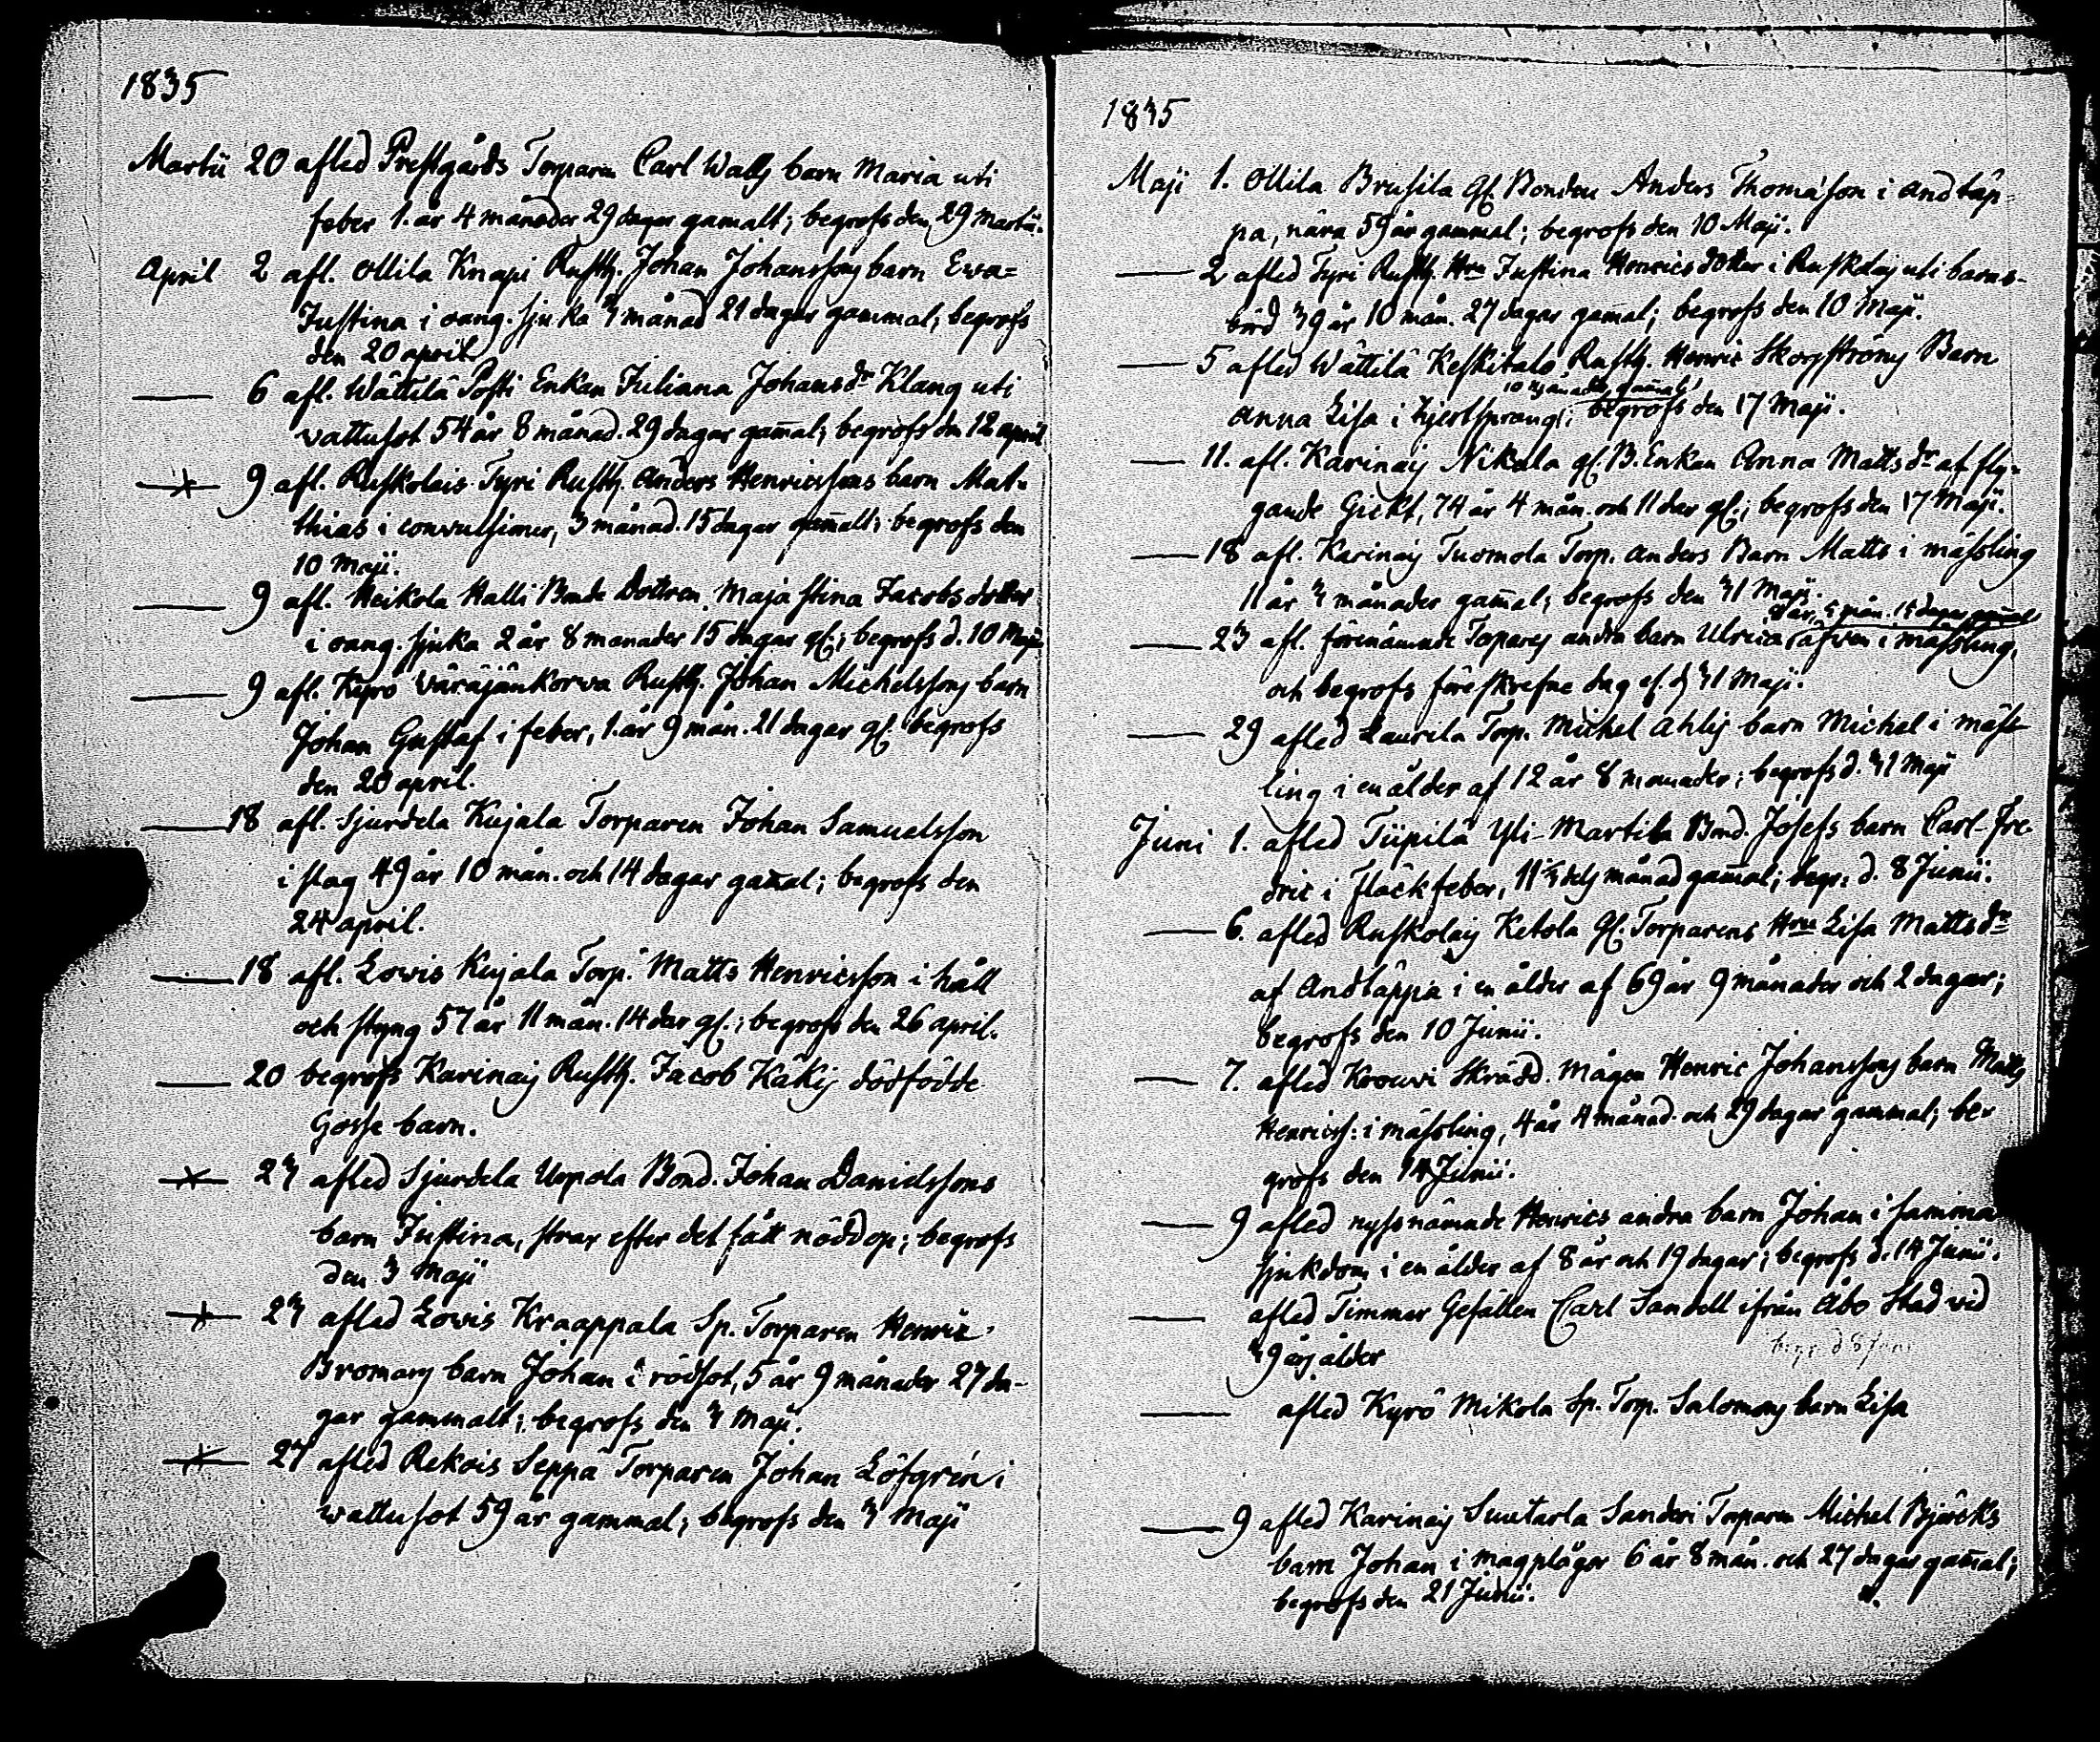 1835
Martii 20 afled Prestgårds Torparen Carl Walls barn Maria uti
feber 1. år 4 månader 29 dagar gamalt; begrofs den 29 Martii.
April 2 afl. Ollila Knapi Rusth. Johan Johanssons barn Ewa=
Justina i oang. sjuka 3 månad 21 dagar gammal, begrofs
den 20 april.
6 afl. Wättilä Posti Enkan Juliana Johansdr Klang uti
vattusot 54 år 8 månad. 29 dagar gam̄al; begrofs den 12 april
9 afl. Ruskolais Tyri Rusth. Anders Henricssons barn Mat-
thias i convulsioner, 3 månad. 15 dagar gam̄alt; begrofs den
10 Maji.
9 afl. Heikola Halli Bonde Dottren Maja Stina Jacobs dotter
i oang. sjuka 2 år 8 månader 15 dagar gl.; begrofs d. 10 Maji
9 afl. Kyrö Wäräjänkorwa Rusth. Johan Michelssons barn
Johan Gustaf i feber, 1. år 9 mån. 21 dagar gl. begrofs
den 20 april.
18 afl. Sjurdela Kujala Torparen Johan Samuelsson
i slag 49 år 10 mån. och 14 dagar gam̄al; begrofs den
24 april.
18 afl. Lowis Kujala Torp. Matts Henricsson i håll
och styng 57 år 11 mån. 14 dar gl.; begrofs den 26 april.
20 begrofs Karinais Rusth. Jacob Käkis dödfödde
Gosse barn.
23 afled Sjurdela Uopola Bond. Johan Danielssons
barn Justina, strax efter det fått nöddop; begrofs
den 3 Maji
23 afled Lowis Kraappala Sp. Torparen Henric
Bromans barn Johan i rödsot, 5 år 9 månader 27 da-
gar gammalt; begrofs den 3 Maji.
27 afled Rekois Seppä Torparen Johan Löfgrén i
wattusot 59 år gammal; begrofs den 3 Maji
1835
Maji 1. Ollila Brusila Gl. Bonden Anders Thomasson i andtäp-
pa, nära 59 år gammal; begrofs den 10 Maji.
2 afled Tyri Rusth. Hru Justina Henrics dotter i Ruskolais uti barns-
börd 39 år 10 mån. 27 dagar gam̄al; begrofs den 10 Maji.
5 afled Wättilä Keskitalo Rusth. Henric Skogströms Barn
10 månader gam̄al
Anna Lisa i hjertsprång; begrofs den 17 Maji.
11. afl. Karinais Nikala gl. B. Enkan Anna Mattsdr af fly-
gande Gickt, 74 år 4 mån. och 11 dar gl.; begrofs den 17 Maji.
18 afl. Karinais Tuomola Torp. Anders Barn Matts i mässling
11 år 3 månader gam̄al; begrofs den 31 Maji.
8 år, 5 mån. 15 dagar gam̄al
23 afl. förenämnde Torpares andra barn Ulrica äfven i mässling,
och begrofs föreskrefne dag el. d. 31 Maji.
29 afled Laurila Torp. Michel Ahlis barn Michel i mäss-
ling i en ålder af 12 år 8 månader; begrofs d. 31 Maji
Juni 1. afled Tiipilä Yli-Martila Bond. Josefs barn Carl Fre-
dric i Fläckfeber, 11 dels månad gam̄al; begr. d. 8 Junii.
6. afled Ruskolais Ketola Gl. Torparens Hru Lisa Mattsdr
af Andtäppa i en ålder af 69 år 9 månader och 2 dagar;
begrofs den 10 Junii.
7. afled Krouvi Skrädd. Mågen Henric Johanssons barn Matts
Henricss: i mässling, 4 år 4 månad. och 29 dagar gammal; be-
grofs den 14 Junii.
9 afled nyssnämnde Henrics andra barn Johan i samma
sjukdom i en ålder af 8 år och 19 dagar; begrofs d. 14 Junii.
afled Timmer Gesällen Carl Sandell ifrån Åbo Stad vid
39 års ålder
begr. d 8 Juni
afled Kyrö Mikola Sp. Torp. Salomons barn Lisa
9 afled Karinais Suutarla Sanderi Torparen Michel Björcks
barn Johan i magplågor 6 år 8 mån. och 27 dagar gam̄al;
begrofs den 21 Junii.